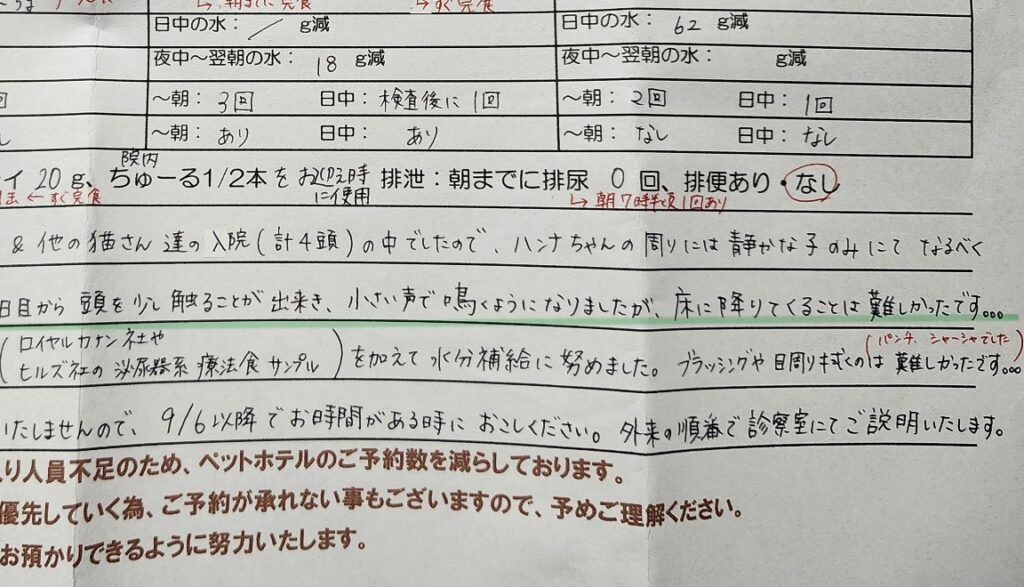 →朝までに完食 →すぐ完食
日中の水：／ g減 日中の水： 62 g減
夜中～翌朝の水： 18 g減 夜中～翌朝の水： g減
回 ～朝： 3回 日中： 検査後に1回 ～朝： 2回 日中： 1回
し ～朝： あり 日中： あり ～朝： なし 日中： なし
院内
イ 20 g、ちゅーる1/2本をお迎え時に使用 排泄：朝までに排尿 0 回、排便あり・なし
缶 ←すぐ完食 →朝7時半頃1回あり
& 他の猫さん達の入院(計4頭)の中でしたので、ハンナちゃんの周りには静かな子のみにて なるべく
日目から 頭を少し触ることが出来き、小さい声で鳴くようになりましたが、床に降りてくることは難しかったです…
(パンチ、シャーシャでした)
(ロイヤルカナン社や
ヒルズ社の泌尿器系療法食サンプル)を加えて水分補給に努めました。ブラッシングや目周り拭くのは難しかったです…
いたしませんので、9/6以降でお時間がある時におこしください。外来の順番で診察室にてご説明いたします。
り人員不足のため、ペットホテルのご予約数を減らしております。
優先していく為、ご予約が承れない事もございますので、予めご理解ください。
お預かりできるように努力いたします。